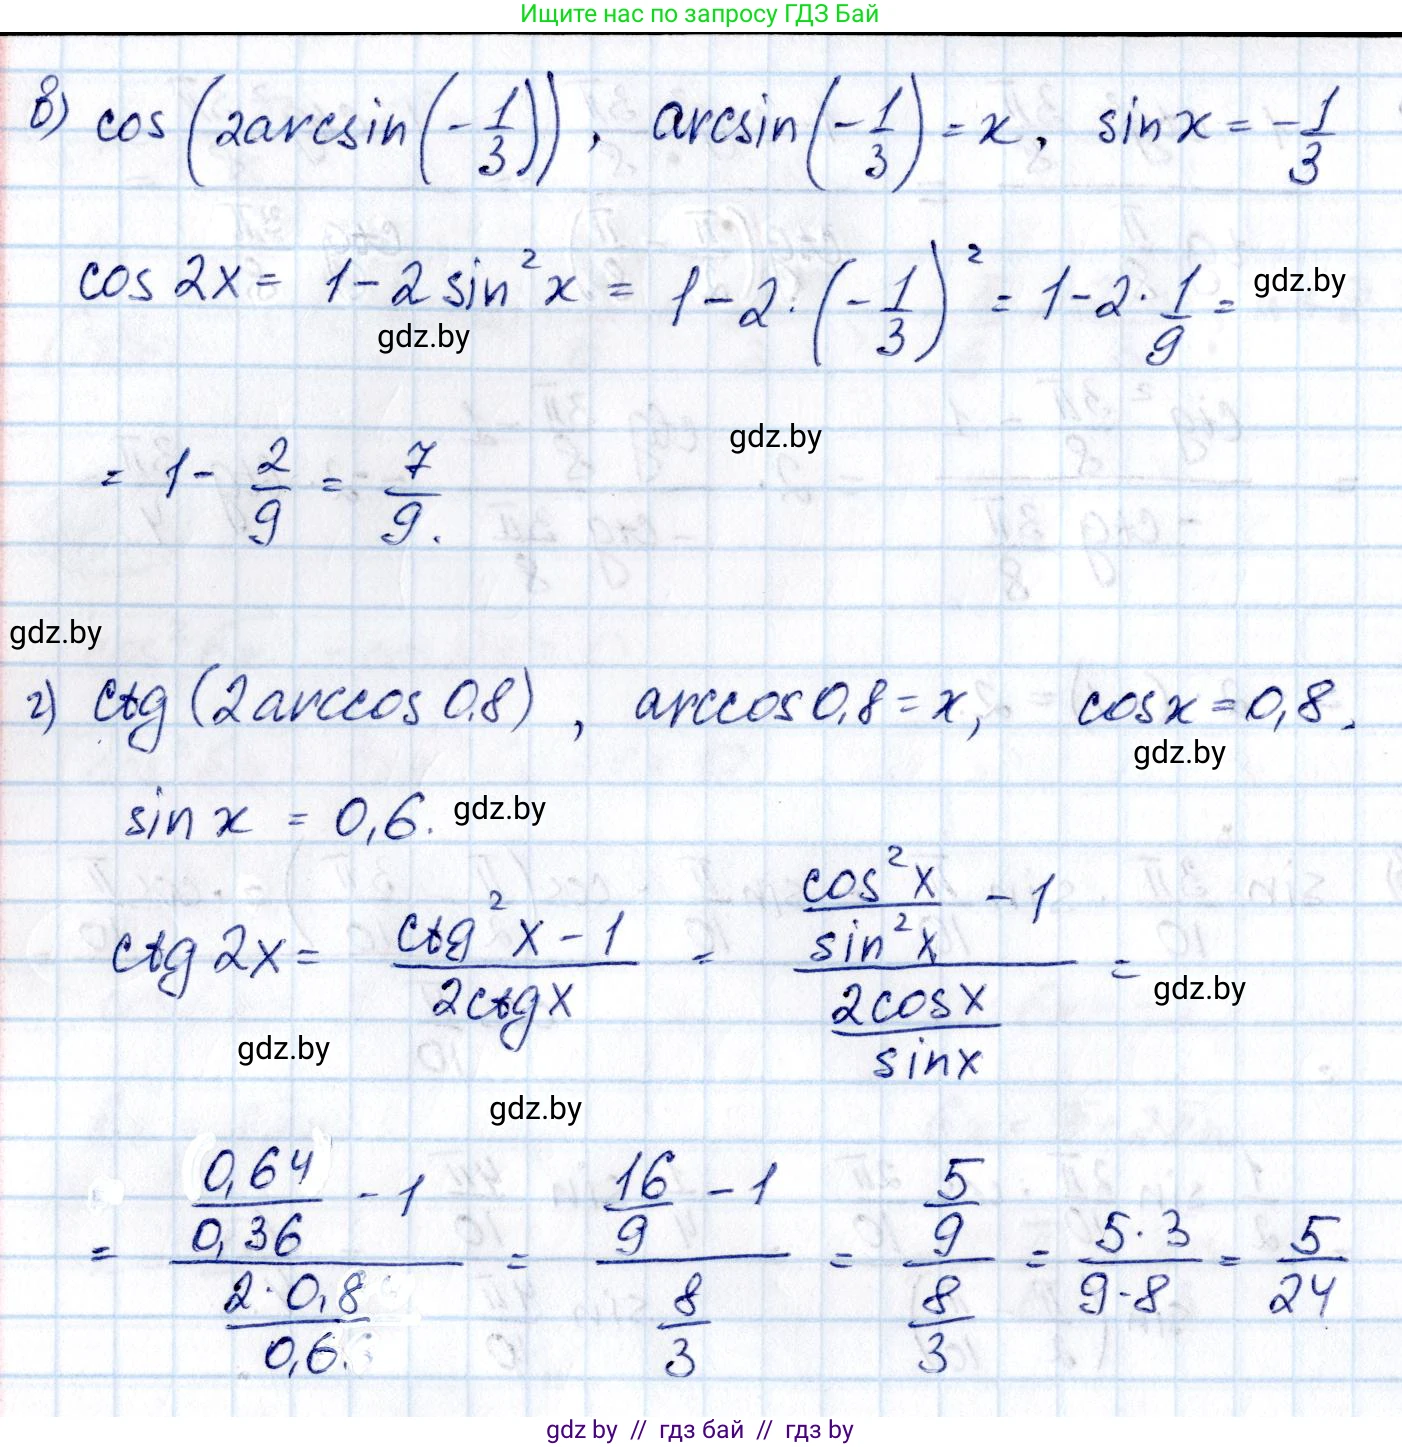 Ищите нас по запросу ГДЗ Бай
в) cos(2arcsin(-1/3)), arcsin(-1/3) = x, sin x = -1/3
cos 2x = 1 - 2 sin²x = 1 - 2·(-1/3)² = 1 - 2·1/9 =
gdz.by
gdz.by
gdz.by
= 1 - 2/9 = 7/9.
gdz.by
г) ctg(2arccos 0,8), arccos 0,8 = x, cos x = 0,8.
gdz.by
sin x = 0,6.
gdz.by
ctg 2x = (ctg²x - 1)/(2ctg x) = (cos²x/sin²x - 1)/(2cos x/sin x) =
gdz.by
gdz.by
gdz.by
= (0,64/0,36 - 1)/(2·0,8/0,6) = (16/9 - 1)/(8/3) = (5/9)/(8/3) = (5·3)/(9·8) = 5/24
gdz.by // гдз бай // гдз by